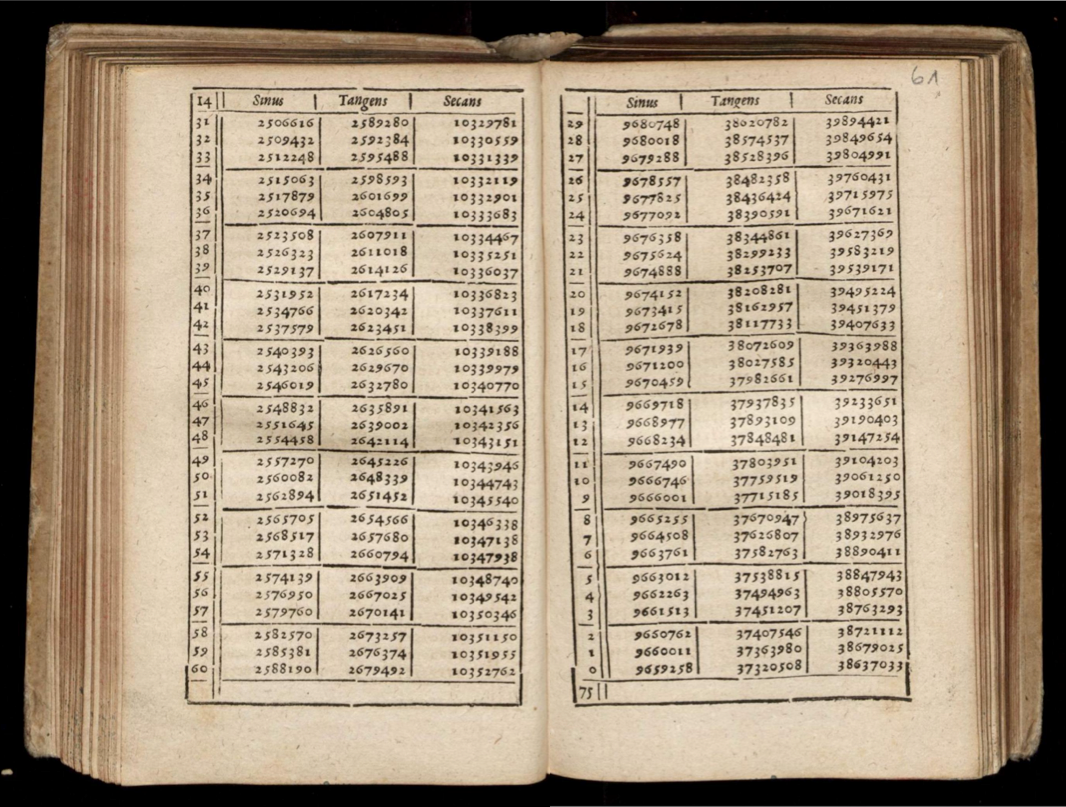 61
14 Sinus Tangens Secans
31 2506616 2589280 10329781
32 2509432 2592384 10330559
33 2512248 2595488 10331339
34 2515063 2598593 10332119
35 2517879 2601699 10332901
36 2520694 2604805 10333683
37 2523508 2607911 10334467
38 2526323 2611018 10335251
39 2529137 2614126 10336037
40 2531952 2617234 10336823
41 2534766 2620342 10337611
42 2537579 2623451 10338399
43 2540393 2626560 10339188
44 2543206 2629670 10339979
45 2546019 2632780 10340770
46 2548832 2635891 10341563
47 2551645 2639002 10342356
48 2554458 2642114 10343151
49 2557270 2645226 10343946
50 2560082 2648339 10344743
51 2562894 2651452 10345540
52 2565705 2654566 10346338
53 2568517 2657680 10347138
54 2571328 2660794 10347938
55 2574139 2663909 10348740
56 2576950 2667025 10349542
57 2579760 2670141 10350346
58 2582570 2673257 10351150
59 2585381 2676374 10351955
60 2588190 2679492 10352762
Sinus Tangens Secans
29 9680748 38620782 39894421
28 9680018 38574537 39849654
27 9679288 38528396 39804991
26 9678557 38482358 39760431
25 9677825 38436424 39715975
24 9677092 38390591 39671621
23 9676358 38344861 39627369
22 9675624 38299233 39583219
21 9674888 38253707 39539171
20 9674152 38208281 39495224
19 9673415 38162957 39451379
18 9672678 38117733 39407633
17 9671939 38072609 39363988
16 9671200 38027585 39320443
15 9670459 37982661 39276997
14 9669718 37937835 39233651
13 9668977 37893109 39190403
12 9668234 37848481 39147254
11 9667490 37803951 39104203
10 9666746 37759519 39061250
9 9666001 37715185 39018395
8 9665255 37670947 38975637
7 9664508 37626807 38932976
6 9663761 37582763 38890411
5 9663012 37538815 38847943
4 9662263 37494963 38805570
3 9661513 37451207 38763293
2 9660762 37407546 38721112
1 9660011 37363980 38679025
0 9659258 37320508 38637033
75